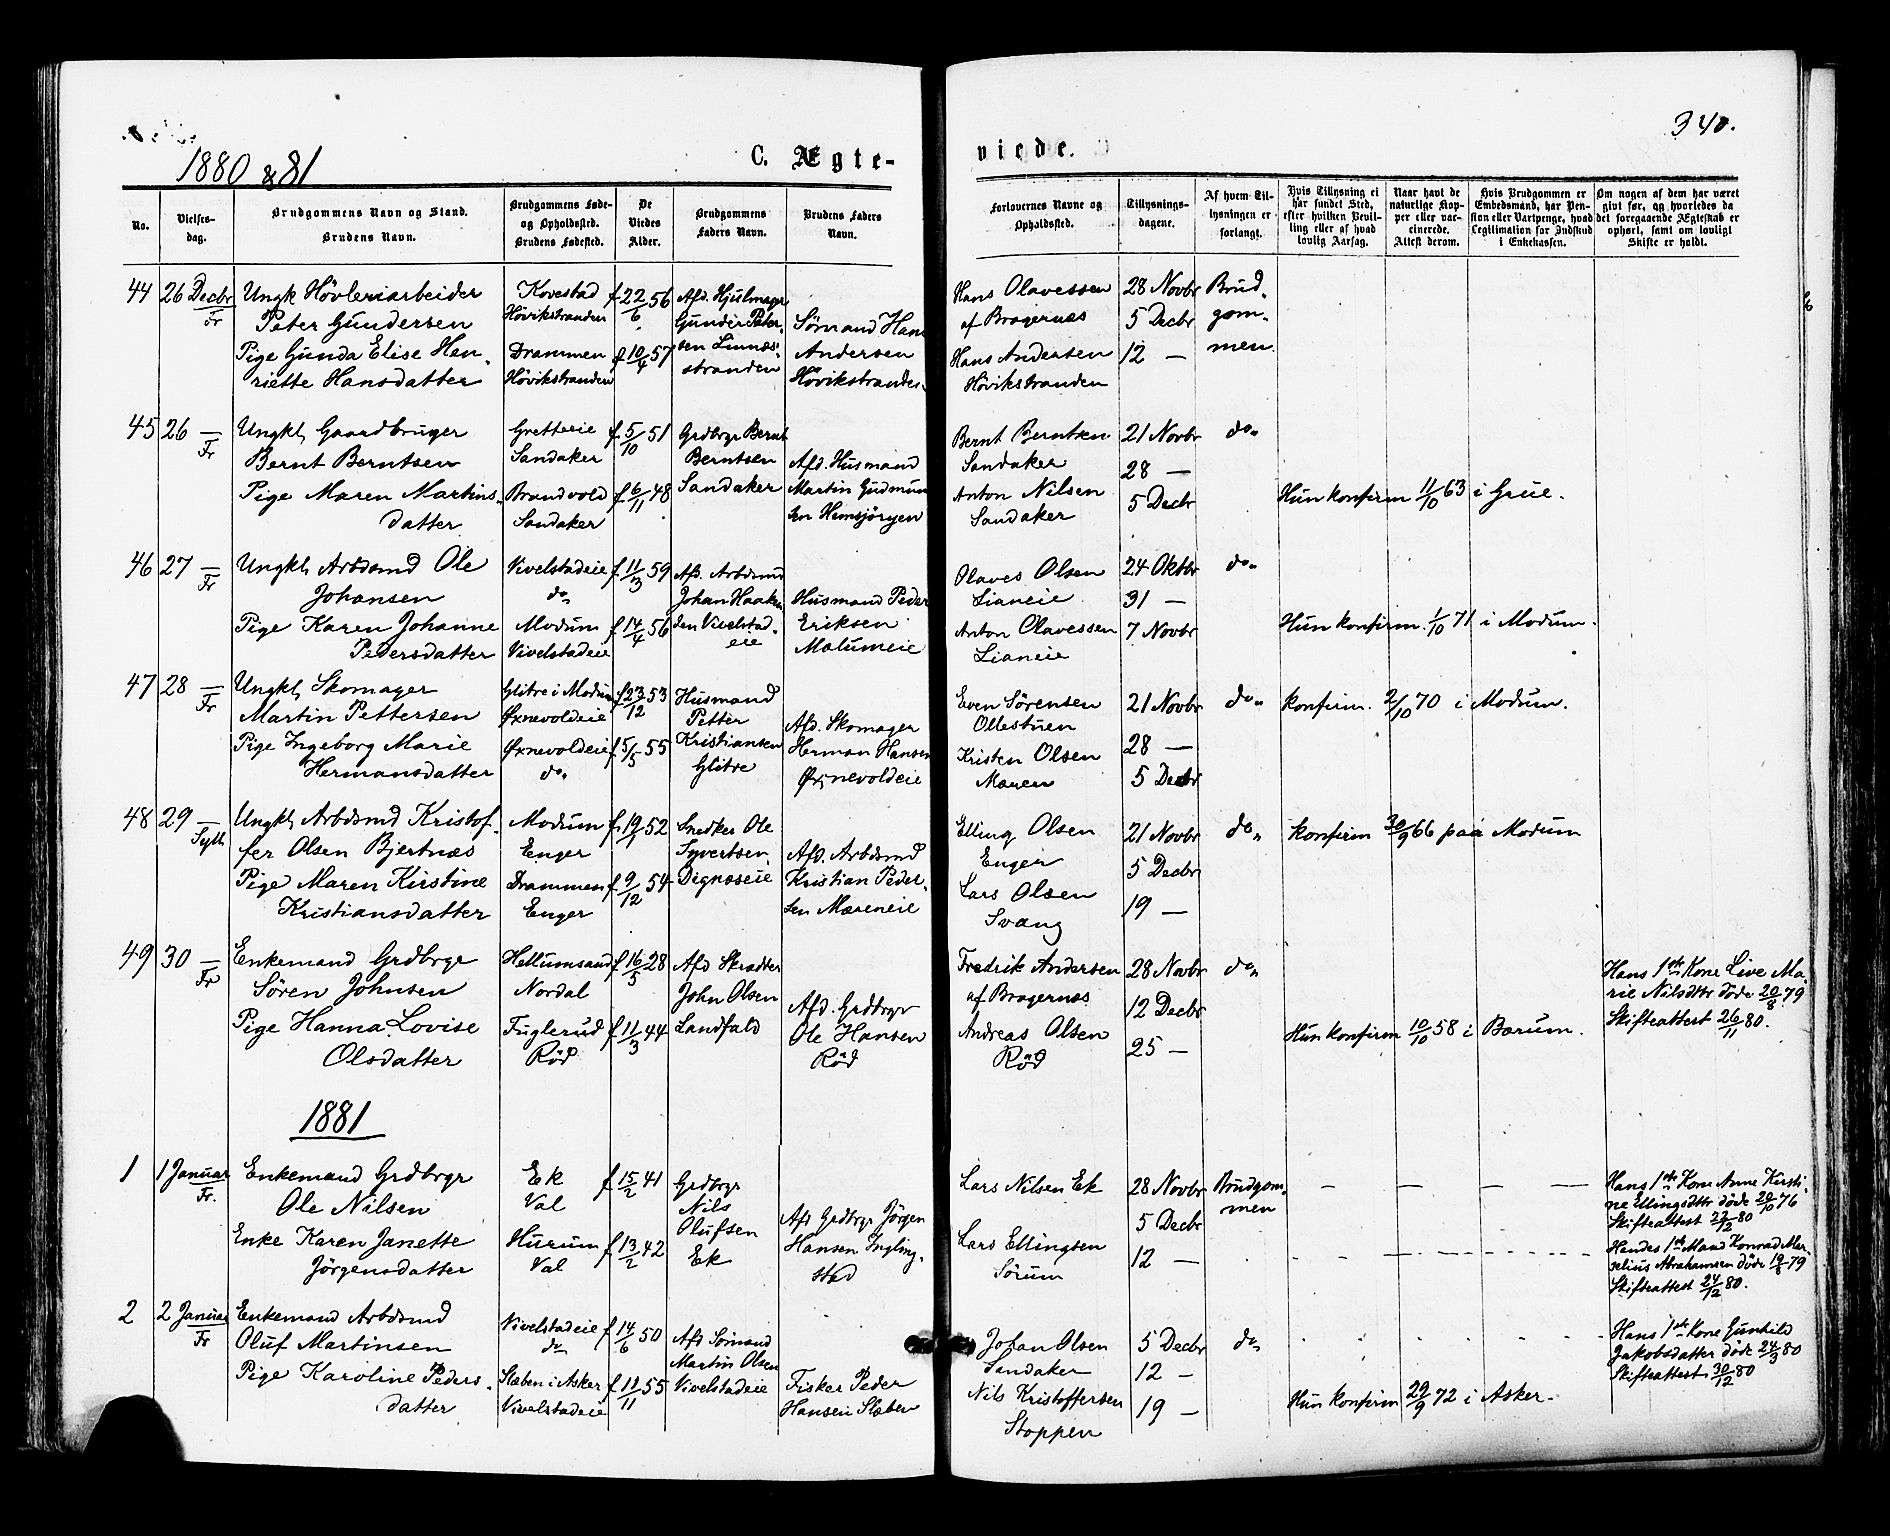 340.
1880 & 81
C. Ægte-
viede.
No.
Vielses-
dag.
Brudgommens Navn og Stand.
Brudens Navn.
Brudgommens Føde-
og Opholdssted.
Brudens Fødested.
De
Viedes
Alder.
Brudgommens
Faders Navn.
Brudens Faders
Navn.
Forlovernes Navne og
Opholdssted.
Tillysnings-
dagene.
Af hvem Til-
lysningen er
forlangt.
Hvis Tillysning ei
har fundet Sted,
efter hvilken Bevil-
ling eller af hvad
lovlig Aarsag.
Naar havt de
naturlige Kop-
per eller vac-
cinerede.
Attest derom.
Hvis Brudgommen er
Embedsmand, har Pen-
sion eller Vartpenge, hvad
Legitimation for Indskud
i Enkekassen.
Om nogen af dem har været
givt før, og hvorledes da
det foregaaende Ægteskab er
ophørt, samt om lovligt
Skifte er holdt.
44
26 Decbr
Fr
Ungk Hövleriarbeider
Peter Gundersen
Pige Gunda Elise Hen-
riette Hansdatter
Kovestad
Hövikstranden
Drammen
Hövikstranden
f 22/6 56
f 10/4 57
Afd. Hjulmager
Gunder Peter-
sen Linnæs-
stranden
Sömand Hans
Andersen
Hövikstranden
Hans Olavessen
af Bragernæs
Hans Andersen
Hövikstranden
28 Novbr
5 Decbr
12 —
Brud-
gom-
men.
45
26 —
Fr
Ungkl, Gaardbruger
Bernt Berntsen
Pige Maren Martins-
datter
Gretteeie
Sandaker
Brandvold
Sandaker
f 5/10 51
f 6/11 48
Grdbrgr Bernt
Berntsen
Sandaker
Afd. Husmand
Martin Gudmun
sen Hemsjörgen
Bernt Berntsen
Sandaker
Anton Nilsen
Sandaker
21 Novbr
28 —
5 Decbr
do"
Hun konfirm 11/10 63 i Grue.
46
27 —
Fr
Ungkl, Arbdsmd Ole
Johansen
Pige Karen Johanne
Pedersdatter
Vivelstadeie
do"
Modum
Vivelstadeie
f 11/3 59
f 14/4 56
Afd. Arbdsmd
Johan Haaken
sen Vivelstad-
eie
Husmand Peder
Eriksen
Mælumeie
Olaves Olsen
Lianeie
Anton Olavessen
Lianeie
24 Oktbr
31 —
7 Novbr
do"
Hun konfirm. 1/10 71 i Modum.
47
28 —
Fr
Ungkl, Skomager
Martin Pettersen
Pige Ingeborg Marie
Hermansdatter
Glitre i Modum
Øxnevoldeie
Øxnevoldeie
do"
f 23/12 53
f 5/5 55
Husmand
Petter
Kristiansen
Glitre
Afd. Skomager
Herman Hansen
Øxnevoldeie
Even Sörensen
Ollestuen
Kristen Olsen
Mæren
21 Novbr
28 —
5 Decbr
do"
konfirm. 2/10 70 i Modum.
48
29 —
Sylh
Ungkl, Arbdsmd Kristof-
fer Olsen Bjertnæs
Pige Maren Kirstine
Kristiansdatter
Modum
Enger
Drammen
Enger
f 19/1 52
f 9/12 54
Snedker Ole
Syvertsen
Dignæseie
Afd. Arbdsmd
Kristian Peder-
sen Mæreneie
Elling Olsen
Enger
Lars Olsen
Svang
21 Novbr
5 Decbr
19 —
do"
konfirm 30/9 66 paa Modum
49
30 —
Fr
Enkemand Grdbrgr
Sören Johnsen
Pige Hanna Lovise
Olsdatter
Hellumsand
Nordal
Fuglerud
Röd
f 16/5 28
f 11/3 44
Afd Skrædder
John Olsen
Landfald
Afd. Grdbrgr
Ole Hansen
Röd
Fredrik Andersen
af Bragernæs
Andreas Olsen
Röd
28 Novbr
12 Decbr
25 —
do"
Hun konfirm 10/10 58 i Bærum.
Hans 1ste Kone Live Ma-
rie Nilsdttr döde 20/8 79
Skifteattest 26/11 80.
1881
1
1 Januar
Fr.
Enkemand Grdbrgr
Ole Nilsen
Enke Karen Janette
Jörgensdatter
Ek
Val
Hurum
Val
f 15/2 41
f 13/2 42
Grdbrgr
Nils
Olufsen
Ek
Afd Grdbrgr Jörgen
Hansen Ingling-
stad
Lars Nilsen Ek
Lars Ellingsen
Sörum
28 Novbr
5 Decbr
12 —
Brudgom-
men
Hans 1ste Kone Anne Kirsti-
ne Ellingsdttr döde 20/10 76
Skifteattest 22/12 80
Hendes 1ste Mand Konrad Mar-
selius Abrahamsen döde 19/8 79
Skifteattest 24/12 80.
2
2 Januar
Fr
Enkemand Arbdsmd
Oluf Martinsen
Pige Karoline Peders-
datter
Vivelstadeie
do"
Slæben i Asker
Vivelstadeie
f 14/6 50
f 11/11 55
Afd Sömand
Martin Olsen
Vivelstadeie
Fisker Peder
Hansen Slæben
Johan Olsen
Sandaker
Nils Kristoffersen
Stoppen
5 Decbr
12 —
19 —
do"
Hun konfirm 29/9 72 i Asker.
Hans 1ste Kone Gunhild
Jakobsdatter döde 24/3 80
Skifteattest 30/12 80